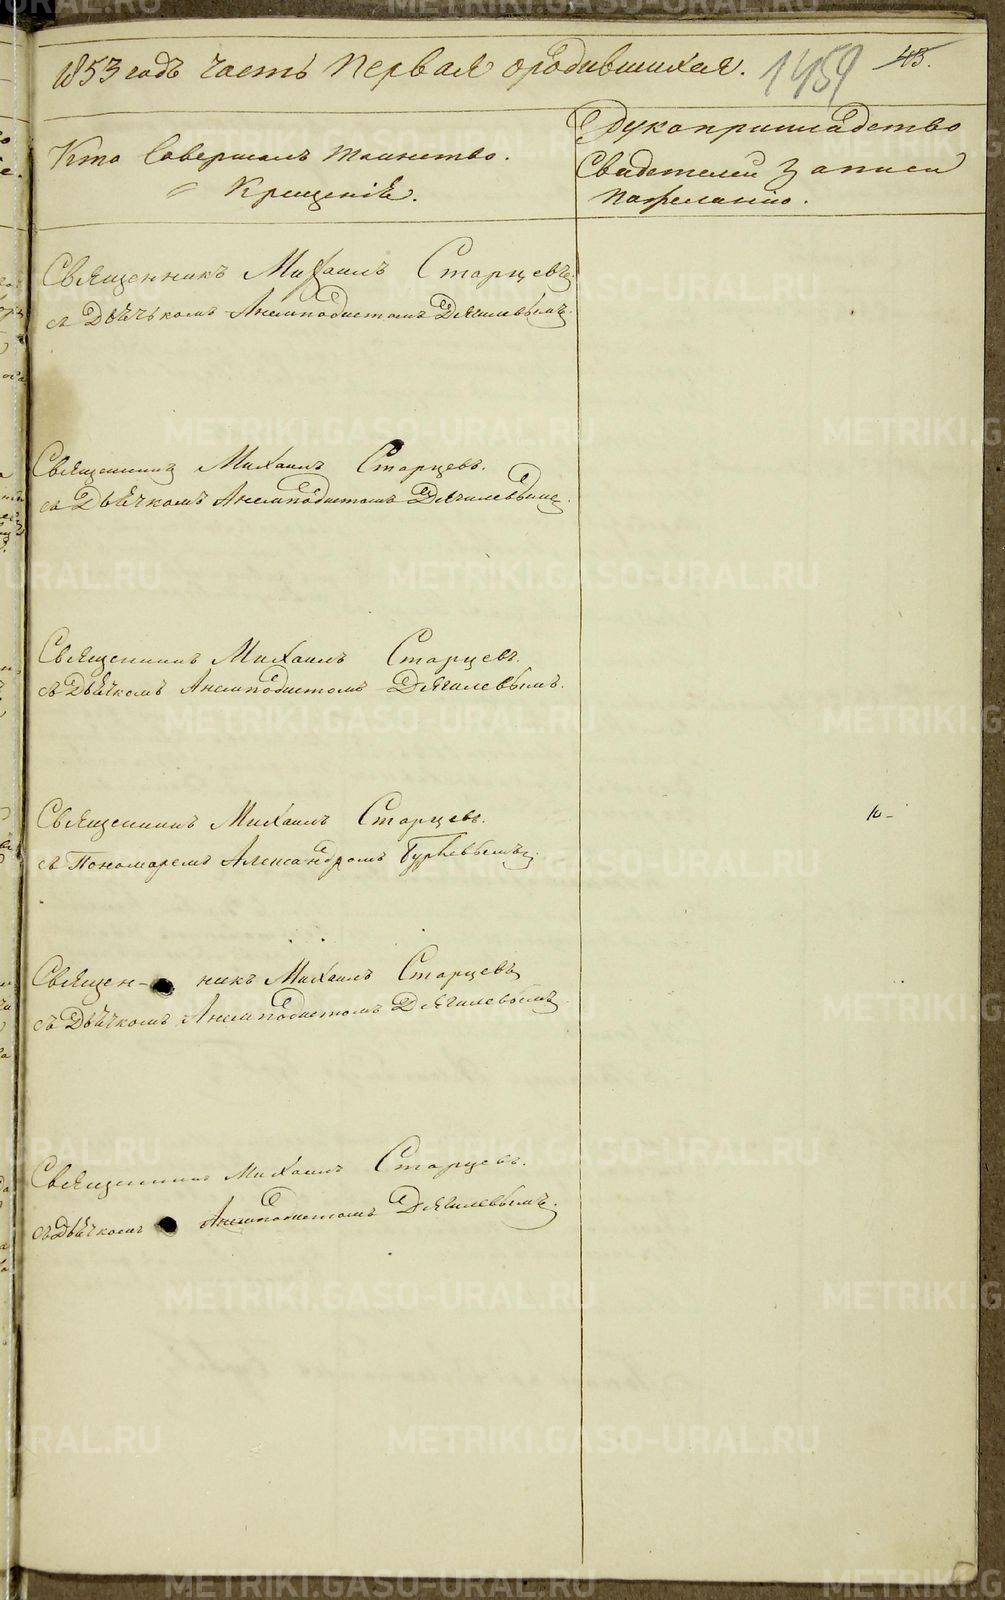 1853 годъ часть первая ородившихся. 1459 45.
Кто Совершалъ таинство.
Крещенія.
Рукоприкладство
Свидетелей Записи
пожеланію.
Священникъ Михаилъ Старцевъ
съ Дьячькомъ Анемподистомъ Дягилевымъ.
Священникъ Михаилъ Старцевъ.
съ Дьячкомъ Анемподистомъ Дягилевымъ.
Священникъ Михаилъ Старцевъ.
съ Дьячкомъ Анемподистомъ Дягилевымъ.
Священникъ Михаилъ Старцевъ.
съ Пономаремъ Александромъ
Священ- никъ Михаилъ Старцевъ
съ Дьячкомъ Анемподистомъ Дягилевымъ
Священникъ Михаилъ Старцевъ.
съ Дьячкомъ Анемподистомъ Дягилевымъ.